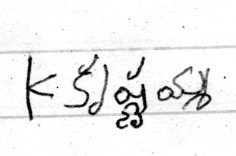 K కృష్ణయ్య